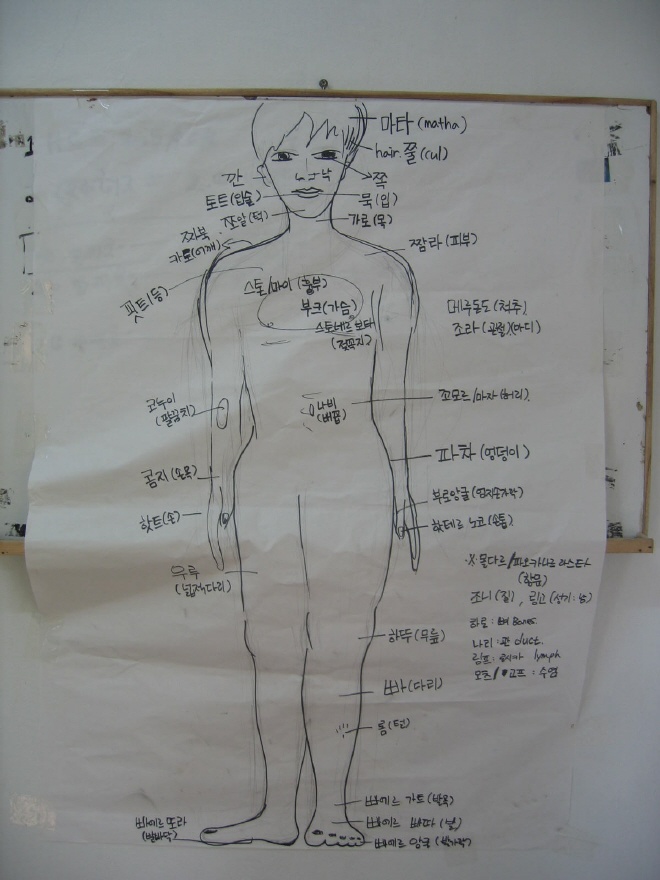 마타 (matha)
hair. 쭐 (cul)
깐
낙
쪽
토트 (입술)
묵 (입)
쪼알 (턱)
가로 (목)
짜북
카로 (어깨)
짬라 (피부)
핏트 (등)
스톤/마이 (흉부)
부크 (가슴)
스토네르 보타
(젖꼭지)
메루돈도 (척추)
조라 (관절)(마디)
코누이
(팔꿈치)
나비
(배꼽)
꼬모르/마자 (허리)
파차 (엉덩이)
콥지 (손목)
부로앙굴 (엄지손가락)
핫트 (손)
하테르 노코 (손톱)
우루
(넓적다리)
※ 몰다르/파오카나르 라스타
(항문)
조니 (질), 링고 (성기:남)
하로 : 뼈 Bones.
나리 : 관 duct.
림프 : lymph
모츠/ 고프 : 수염
하뚜 (무릎)
빠 (다리)
롬 (털)
빠에르 가트 (발목)
빠에르 빠따 (발)
빠에르 또라
(발바닥)
빠에르 앙굴 (발가락)